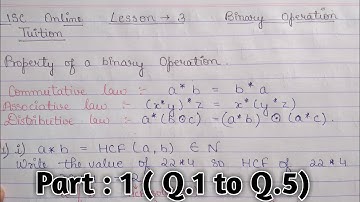 ISC Online Lesson → 3 Binary Operation
Tuition
Property of a binary Operation.
Commutative law :- a * b = b * a
Associative law :- (x*y)*z = x*(y*z)
Distributive law :- a*(b⊙c) = (a*b) ⊙ (a*c).
1) i) a*b = HCF (a, b) ∈ N
Write the value of 22*4 so HCF of 22*4
Part : 1 ( Q.1 to Q.5)